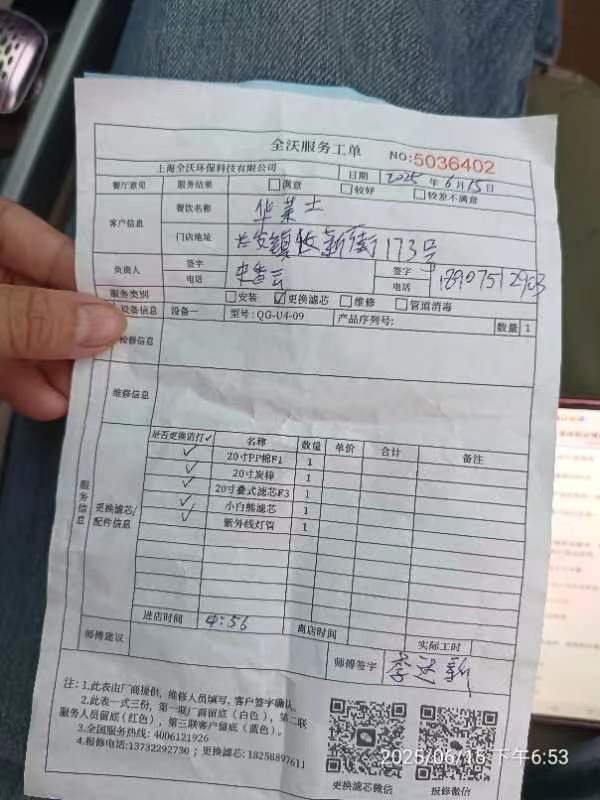 全沃服务工单
NO:5036402
上海全沃环保科技有限公司 日期 2025 年 6 月 15 日
餐厅意见 服务结果 □满意 □较好 □较差不满意
客户信息 餐饮名称 华莱士
门店地址 长安镇牧新街173号
负责人 签字 电话 签字 电话 18907512903
服务类别 □安装 ☑更换滤芯 □维修 □管道消毒
设备信息 设备一 型号:QG-U4-09 产品序列号: 数量 1
检修信息
维修信息
服务信息 更换滤芯/配件信息
是否更换请打✓ 名称 数量 单价 合计 备注
✓ 20寸PP棉F1 1
✓ 20寸炭棒 1
✓ 20寸叠式滤芯F3 1
✓ 小白熊滤芯 1
✓ 紫外线灯管 1
进店时间 4:56 离店时间 实际工时
师傅建议 师傅签字 李达新
注:1.此表由厂商提供,维修人员填写,客户签字确认。
2.此表一式三份,第一联厂商留底(白色),第二联
服务人员留底(红色),第三联客户留底(蓝色)。
3.全国服务热线:4006121926
4.报修电话:13732292730 ;更换滤芯:18258897611
更换滤芯微信 报修微信
2025/06/15 下午6:53